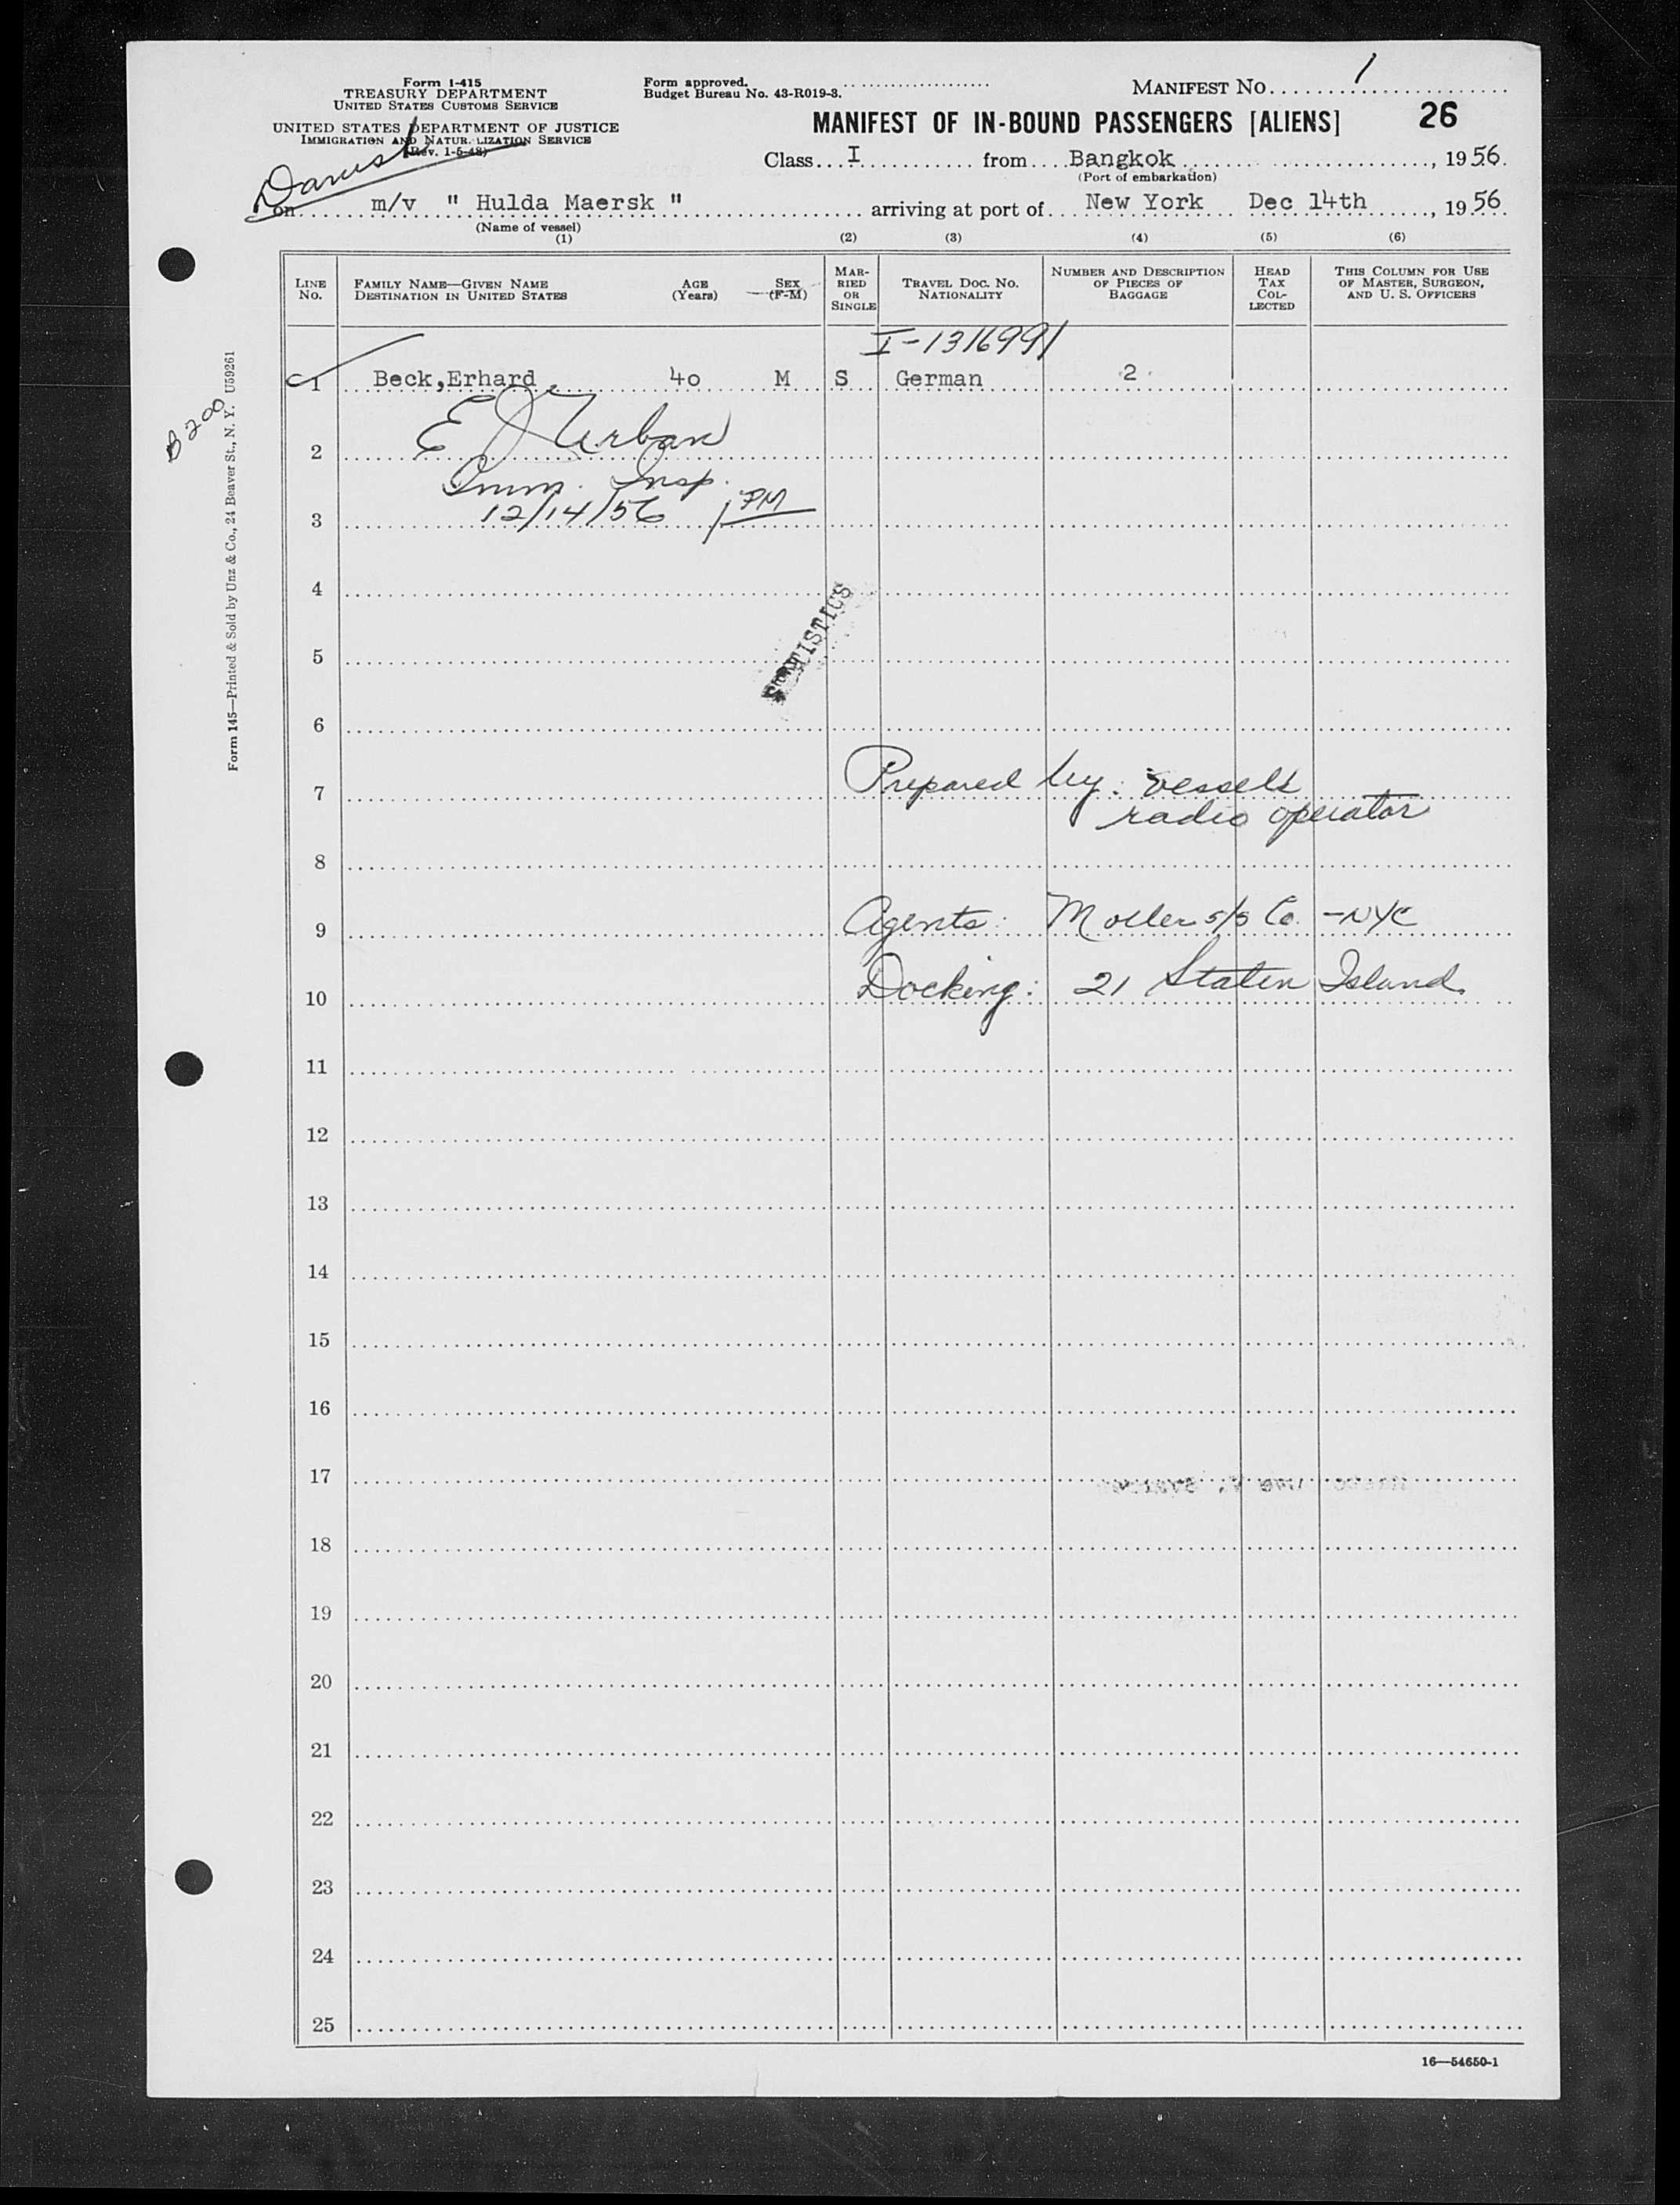 Form I-415
TREASURY DEPARTMENT
UNITED STATES CUSTOMS SERVICE
UNITED STATES DEPARTMENT OF JUSTICE
IMMIGRATION AND NATURALIZATION SERVICE
(Rev. 1-5-48)
Danish
Form approved.
Budget Bureau No. 43-R019-3.
MANIFEST NO. 1
MANIFEST OF IN-BOUND PASSENGERS [ALIENS] 26
Class I from Bangkok, 1956.
(Port of embarkation)
on m/v " Hulda Maersk " arriving at port of New York Dec 14th, 1956.
(Name of vessel)
(1) (2) (3) (4) (5) (6)
LINE No.
FAMILY NAME—GIVEN NAME
DESTINATION IN UNITED STATES
AGE (Years)
SEX (F-M)
MARRIED OR SINGLE
TRAVEL DOC. NO.
NATIONALITY
NUMBER AND DESCRIPTION OF PIECES OF BAGGAGE
HEAD TAX COLLECTED
THIS COLUMN FOR USE OF MASTER, SURGEON, AND U. S. OFFICERS
I-1316991
1 Beck,Erhard. 40 M S German 2
E J Urban
2
Imm. Insp.
3 12/14/56 1 PM
4
STATISTICS
5
6
7 Prepared by: vessels
radio operator
8
9 Agents: Moller s/s Co. -NYC
10 Docking: 21 Staten Island
11
12
13
14
15
16
17
18
19
20
21
22
23
24
25
16—54650-1
B 200
Form 145—Printed & Sold by Unz & Co., 24 Beaver St., N. Y. U59261